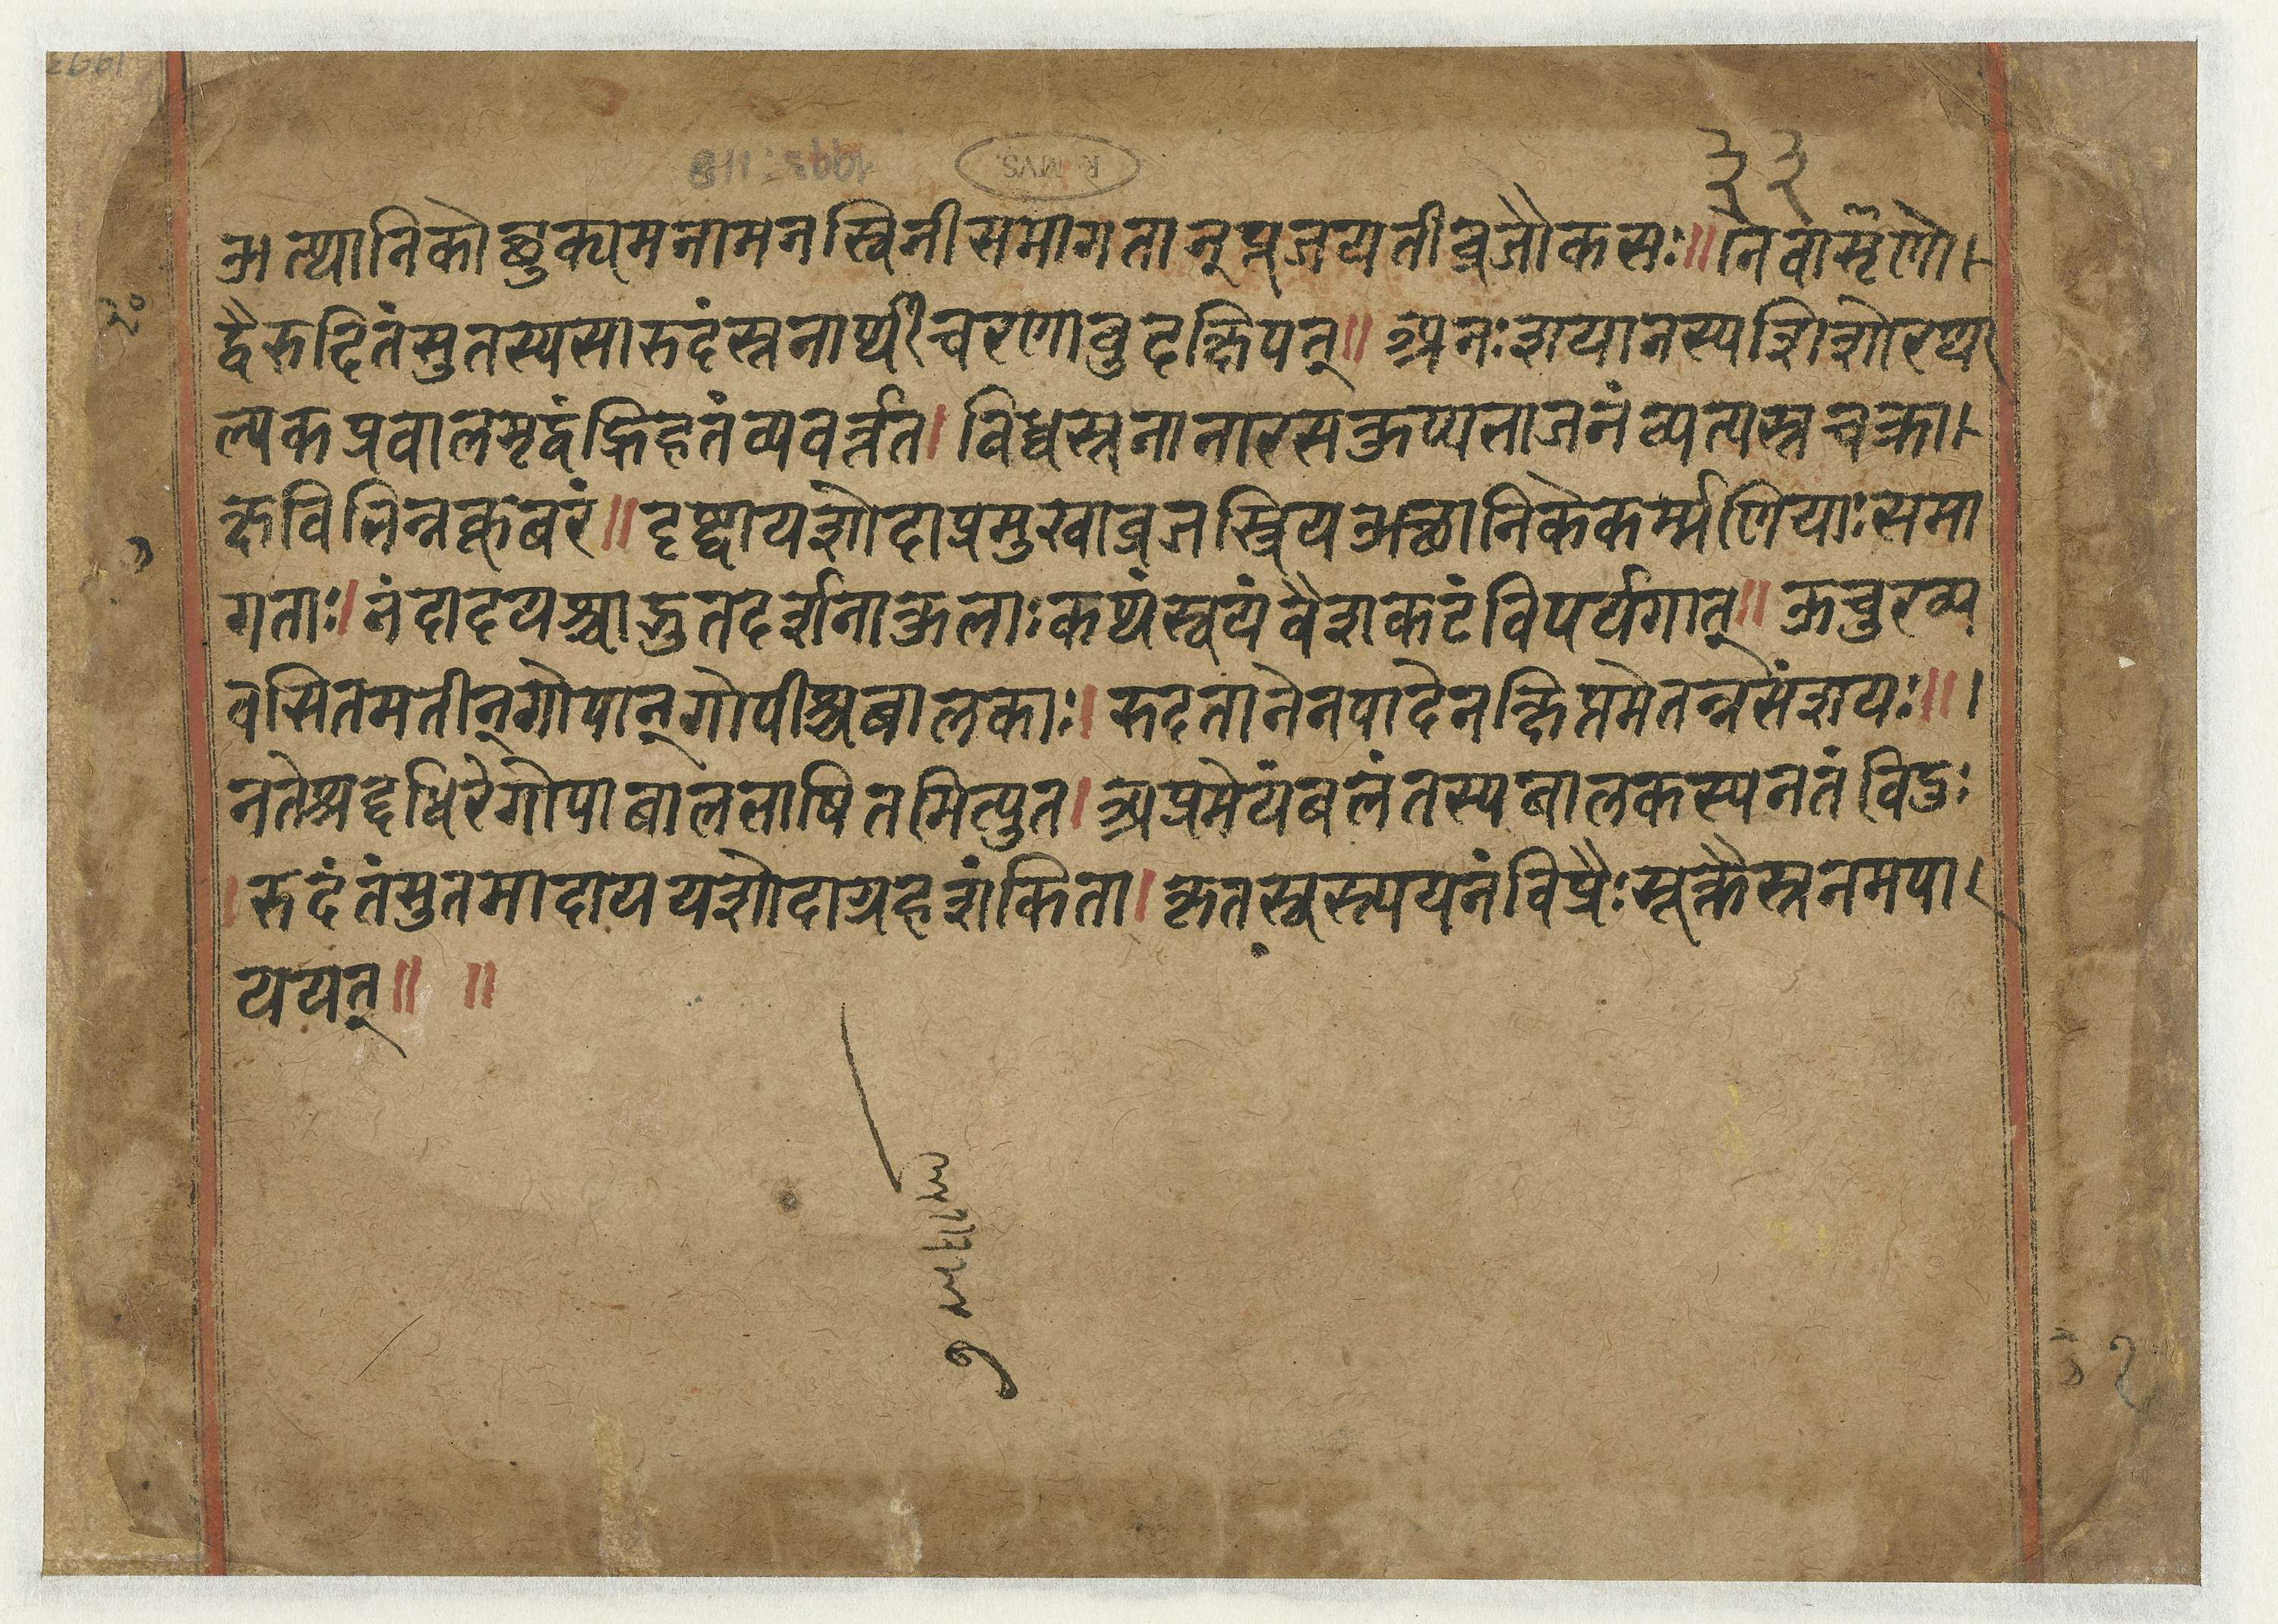 ३३
औत्थानिकौत्सुक्यमनामनस्विनीसमागतान्पूजयतीव्रजौकसः॥नैवाशृणो
द्वैरुदितंसुतस्यसारुदंस्तनार्थीचरणावुदक्षिपत्॥अधःशयानस्यशिशोरथा
ल्पकप्रवालमृद्वंघ्रिहतंव्यवर्त्तत।विध्वस्तनानारसकुप्यभाजनंव्यत्यस्तचक्रा
क्षविभिन्नकूबरं॥दृष्ट्वायशोदाप्रमुखाव्रजस्त्रियऔत्थानिकेकर्म्मणियाःसमा
गताः।नंदादयश्चाद्भुतदर्शनाकुलाःकथंस्वयंवैशकटंविपर्यगात्॥ऊचुरव्य
वसितमतीन्गोपान्गोपीश्चबालकाः।रुदतानेनपादेनक्षिप्तमेतन्नसंशयः॥।
नतेश्रद्दधिरेगोपाबालभाषितमित्युत।अप्रमेयंबलंतस्यबालकस्यनतंविदुः
।रुदंतंसुतमादाययशोदाग्रहशंकिता।कृतस्वस्त्ययनंविप्रैःसूक्तैस्तनमपा
ययत्॥ ॥